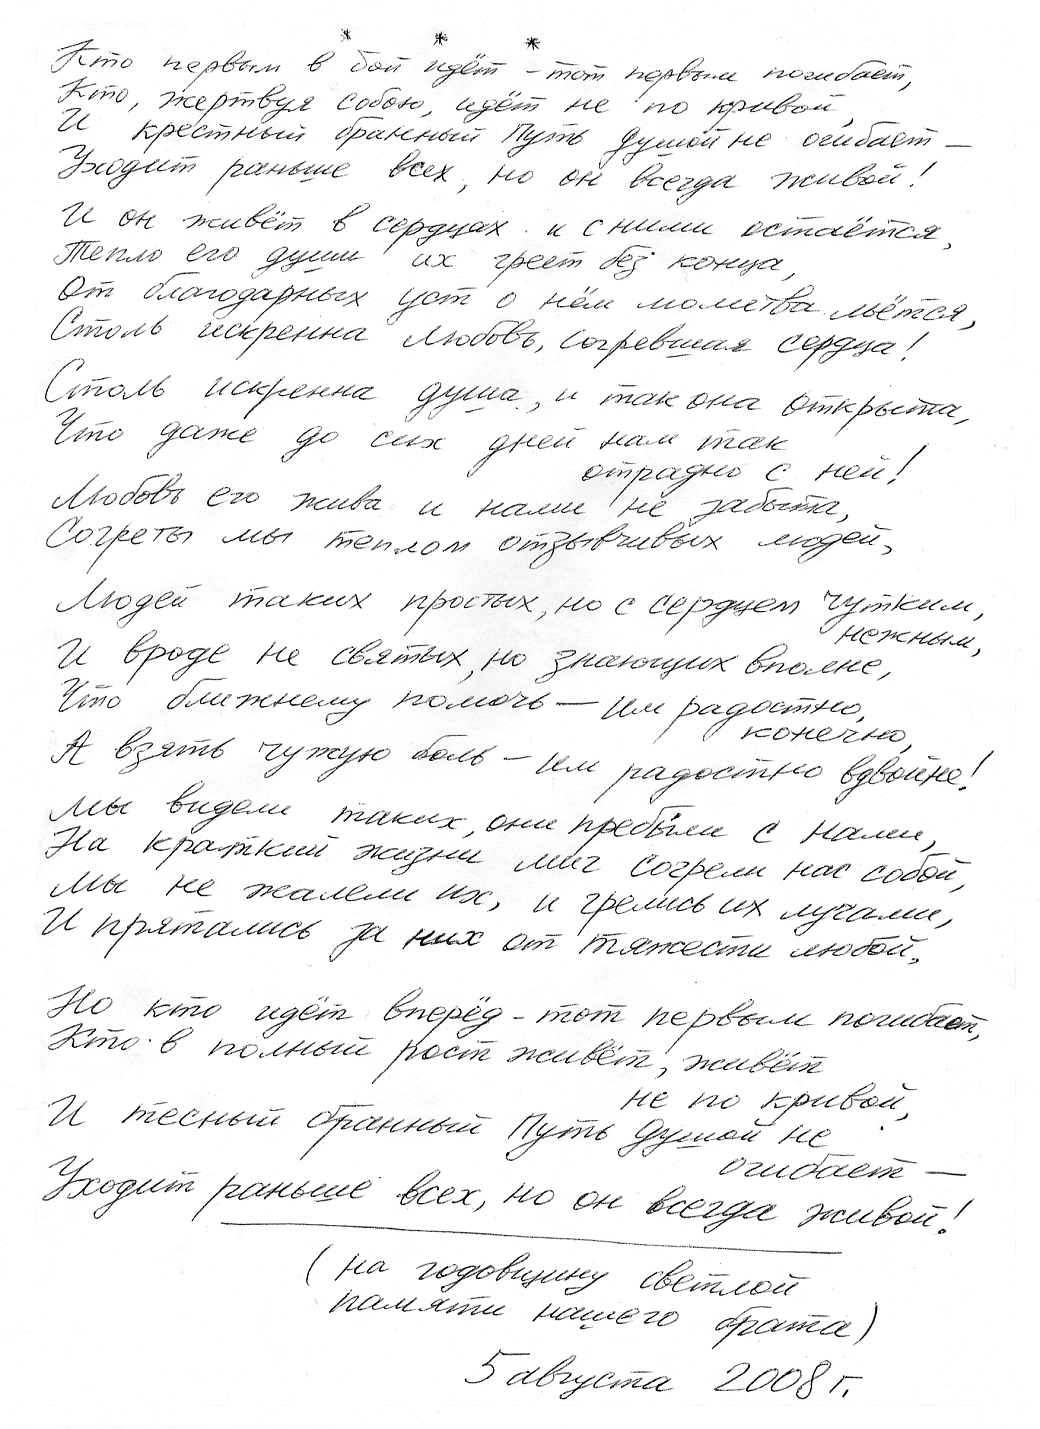 * * *
Кто первым в бой идёт – тот первым погибает,
Кто, жертвуя собою, идёт не по кривой,
И крестный бранный Путь Душой не огибает —
Уходит раньше всех, но он всегда живой!
И он живёт в сердцах и с ними остаётся,
Тепло его души их греет без конца,
От благодарных уст о нём молитва льётся,
Столь искренна Любовь, согревшая сердца!
Столь искренна душа, и так она открыта,
Что даже до сих дней нам так
отрадно с ней!
Любовь его жива и нами не забыта,
Согреты мы теплом отзывчивых людей,
Людей таких простых, но с сердцем чутким,
нежным,
И вроде не святых, но знающих вполне,
Что ближнему помочь — им радостно,
конечно,
А взять чужую боль – им радостно вдвойне!
Мы видели таких, они пребыли с нами,
На краткий жизни миг согрели нас собой,
Мы не жалели их, и грелись их лучами,
И прятались за них от тяжести любой.
Но кто идёт вперёд – тот первым погибает,
Кто в полный рост живёт, живёт
не по кривой,
И тесный бранный Путь Душой не
огибает —
Уходит раньше всех, но он всегда живой!
(на годовщину светлой
памяти нашего брата)
5 августа 2008 г.